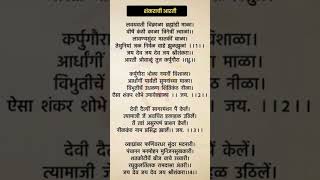 शंकराची आरती
लवथवती विक्राळा ब्रह्मांडी माळा।
वीषें कंठी काळा त्रिनेत्रीं ज्वाळा।।
लावण्यसुंदर मस्तकीं बाळा।
तेथुनियां जळ निर्मळ वाहे झुळझुळां ।।1।।
जय देव जय देव जय श्रीशंकरा।
आरती ओवाळूं तुज कर्पुरगौरा
कर्पुरगौरा भोळा नयनीं विशाळा।
अर्धांगीं पार्वती सुमनांच्या माळा।
विभुतीचें उधळण शितिकंठ नीळा।
ऐसा शंकर शोभे उमावेल्हाळा ।। जय ।।2।।
देवी दैत्यीं सागरमंथन पैं केलें।
त्यामाजी जें अवचित हळाहळ उठिलें।
तें त्वां असुरपणें प्राशन केलें।
नीळकंठ नाम प्रसिद्ध झालें।। जय. ।।3।।
व्याघ्रांबर फणिवरधर सुंदर मदनारी।
पंचानन मनमोहन मुनिजनसुखकारी।
शतकोटीचें बीज वाचे उच्चारी।
रघुकुळतिळक रामदासा अंतरीं।।
जय देव जय देव जय श्रीशंकरा।।4।।